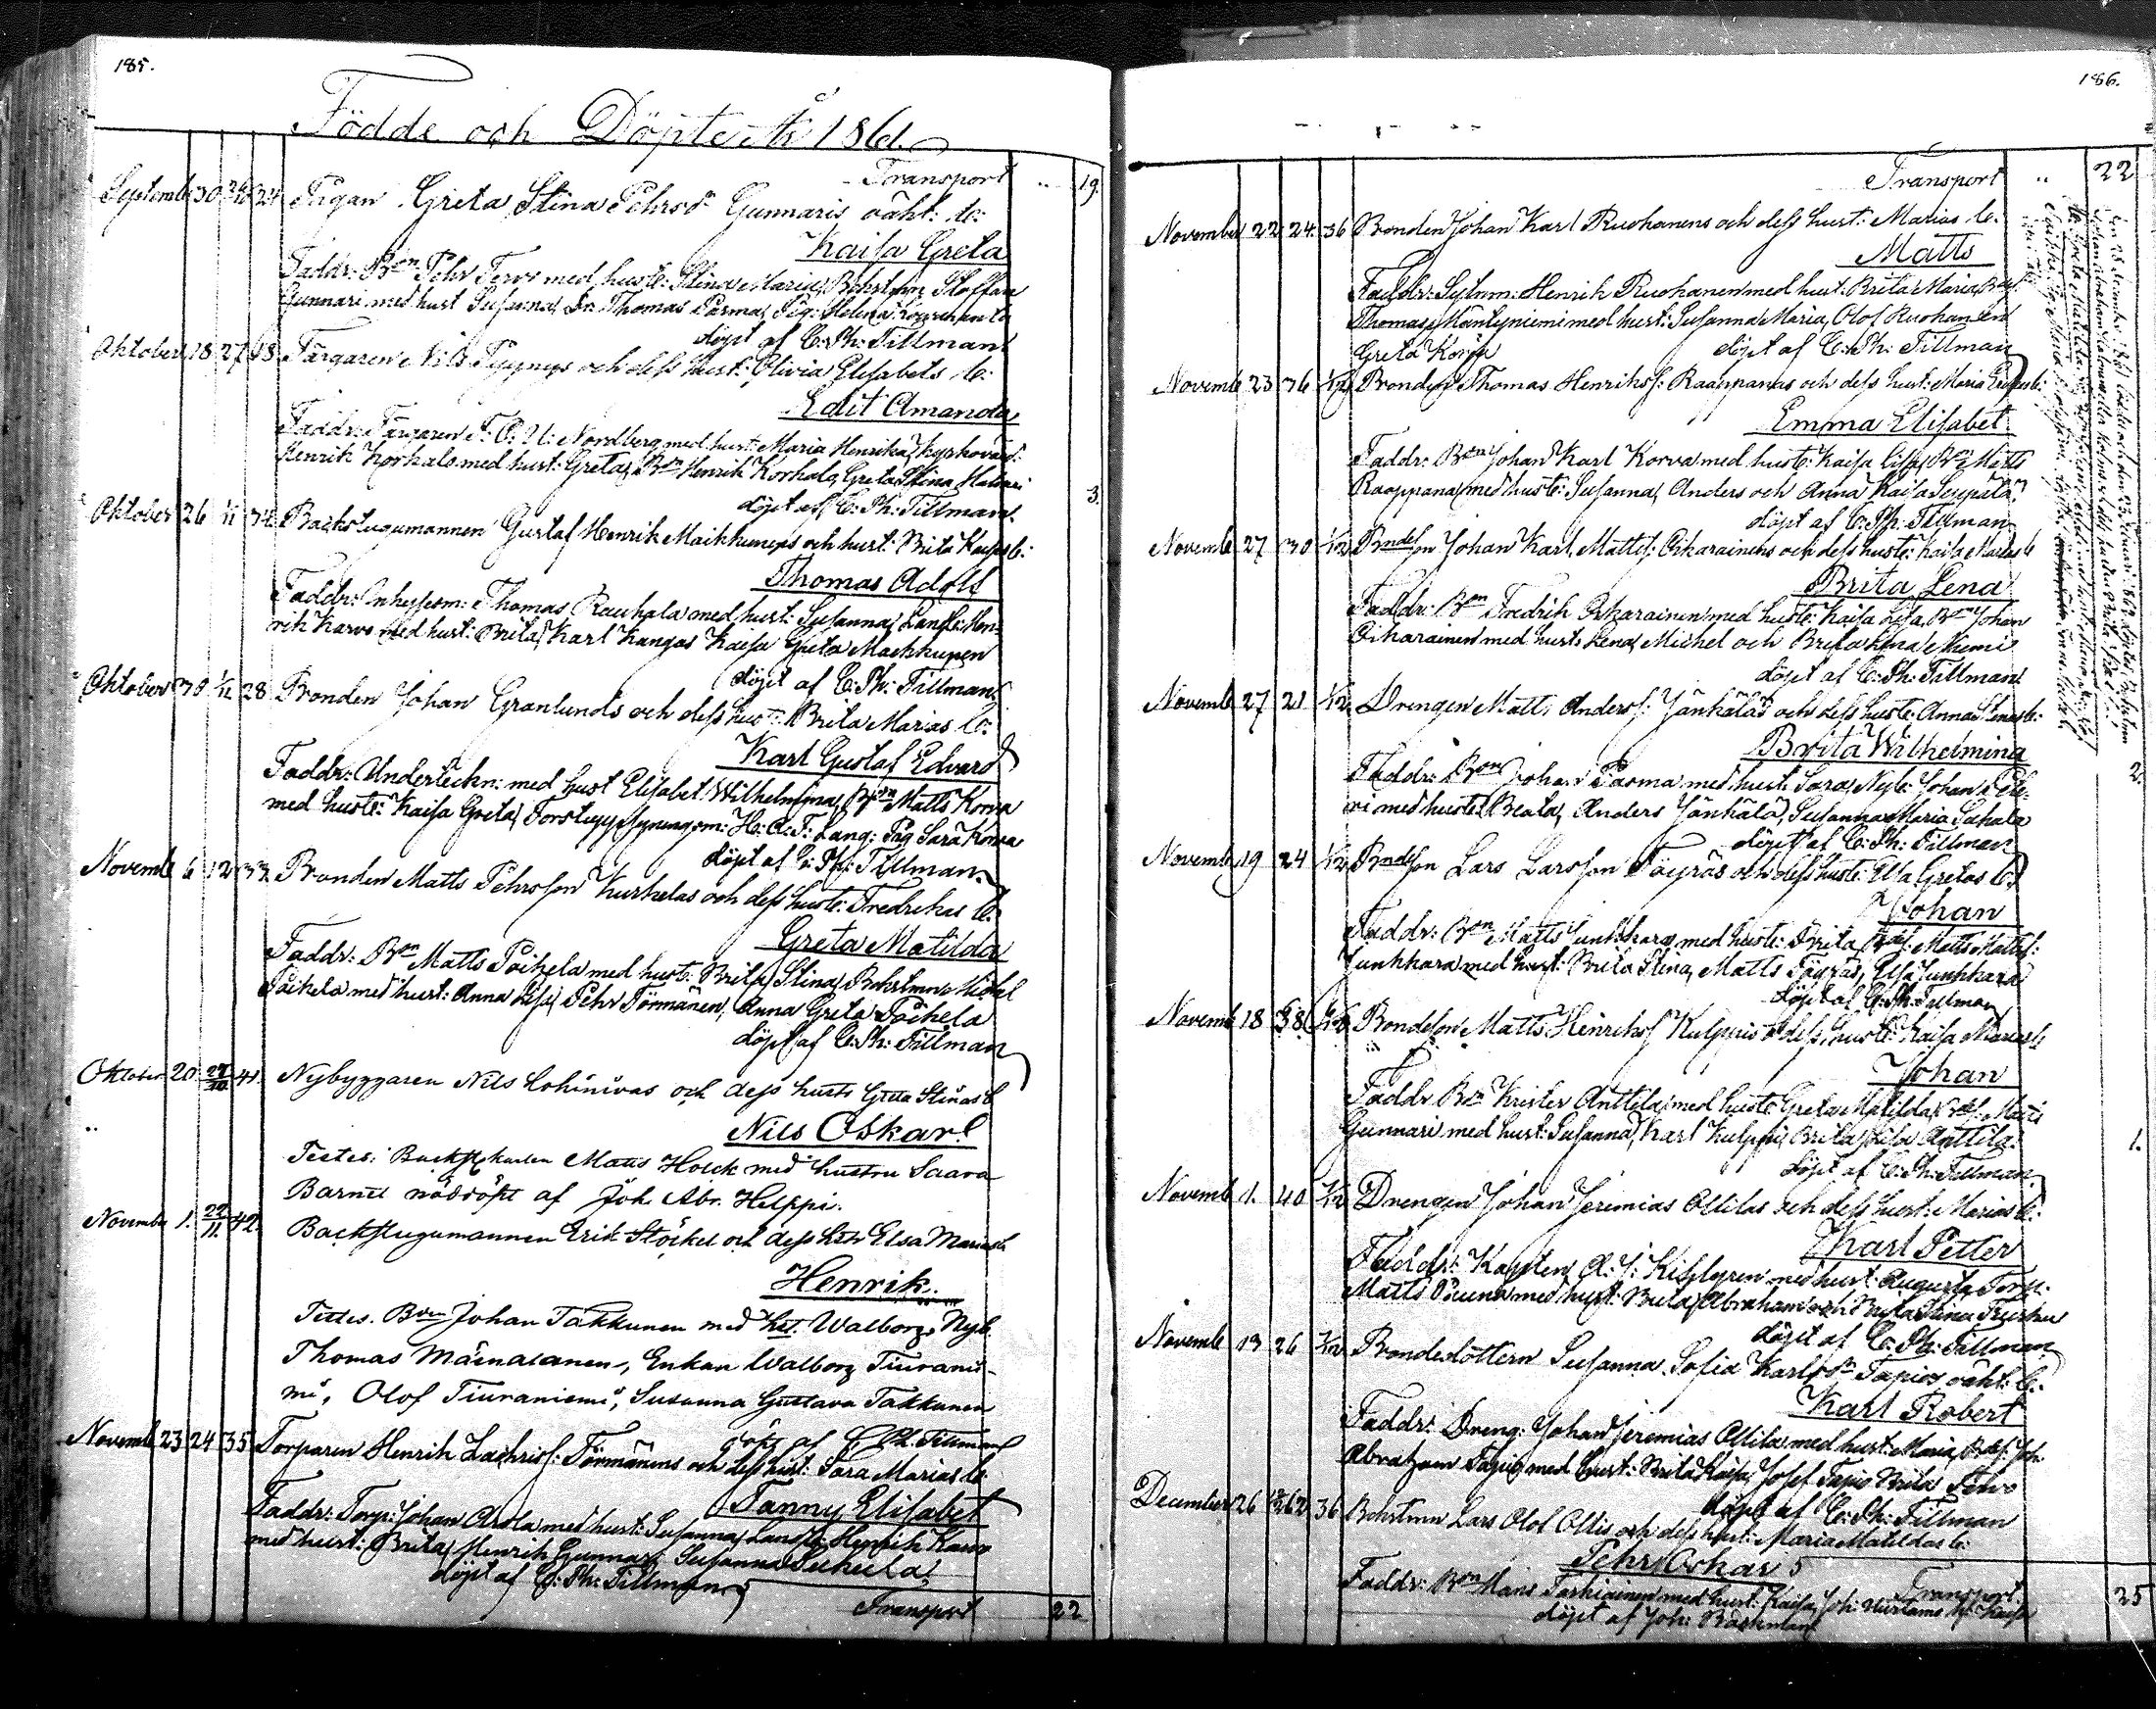 185.
Födde och Döpte År 1861.
Transport .. 19.
September 30 24 Pigan Greta Stina Pehrsdr Gunnaris oäkt: b:
Kaisa Greta
Faddr: Bon Pehr Tervo med hust: Stina Maria, Bakstmn Staffan
Gunnari med hust Susanna, Dr: Thomas Parma, Pig: Helena
döpt af C: Ph: Tillman
Oktober 18 27 Färgaren Nils och dess hust: Olivia Elisabets b:
Edit Amanda
Faddr: Färgaren F: O: U: Nordberg med hust: Maria Henrika,
Henrik Korhala med hust: Greta, Bon Henrik Korhala, Greta Stina
döpt af C: Ph: Tillman. 3.
Oktober 26 1/11 34 Backstugumannen Gustaf Henrik Maikkunens och hust: Brita Kaisas b:
Thomas Adolf
Faddr: Inhysesm: Thomas Rauhala med hust: Susanna, Hen-
rik Karvo med hust: Brita, Karl Kangas Kaisa Greta Maikkunen
döpt af C: Ph: Tillman
Oktober 30 1/11 28 Bonden Johan Granlunds och dess hust: Brita Marias b:
Karl Gustaf Edvard
Faddr: Underteckn: med hust Elisabet Wilhelmina, Bon Matts Korva
med hust: Kaisa Greta, H: A: F: Lang: Pig Sara Korva
döpt af C: Ph: Tillman.
Novemb 6 12 33 Bonden Matts Pehrsson Kurkelas och dess hust: Fredrikas b:
Greta Matilda
Faddr: Bon Matts Poikela med hust: Brita Stina, Bakstmn Mickel
Poikela med hust: Anna Lisa, Pehr Törmänen, Anna Greta Poikela
döpt af C: Ph: Tillman
Oktober 20 27/10 41. Nybyggaren Nils Lohinivas och dess hustr Greta Stinas b
Nils Oskar
Testes: Matts Holck med hustru Saara
Barnet nöddöpt af Joh. Abr. Helppi.
November 1. 22/11. 42. Backstugumannen Erik Stöckel och dess hstr Elsa Marias b
Henrik.
Testes. Bon Johan Takkunen med hst. Walborg, Nyb.
Thomas Määnalanen, Enkan Walborg Tiuranie-
mi, Olof Tiuraniemi, Susanna Gustava Takkunen
döpt af C Ph. Tillman
Novemb 23 24 35 Torparen Henrik Zachriss: Törmänens och dess hust: Sara Marias b:
Fanny Elisabet
Faddr: Torp: Johan Arola med hust: Susanna, Henrik Karvo
med hust: Brita, Henrik Gunnari Susanna
döpt af C: Ph: Tillman
Transport 22
186.
Transport .. 22
November 22 24. 36 Bonden Johan Karl Ruohanens och dess hust: Marias b:
Matts
Faddr: Sytnm: Henrik Ruohanen med hust: Brita Maria,
Thomas Mäntyniemi med hust: Susanna Maria, Olof Ruohanen
Greta Korja döpt af C: Ph: Tillman
Novemb 23 36 1/12 Bonden Thomas Henrikss: Raappanas och dess hust: Maria
Emma Elisabet
Faddr: Bon Johan Karl Korva med hust: Kaisa Lisa, Bon Matts
Raappana med hust: Susanna, Anders och Anna Kaisa Seppälä
döpt af C: Ph: Tillman
Novemb 27 30 1/12 Bondeson Johan Karl Mattss: Oikarainens och dess hust: Kaisa Marias b
Brita Lena
Faddr: Bon Fredrik Oikarainen med hust: Kaisa Lisa, Bon Johan
Oikarainen med hust: Lena, Mickel och Brita Lena Niemi
döpt af C: Ph: Tillman
Novemb 27 21 1/12 Drengen Matts Anderss: Jänkäläs och dess hust: Anna Stinas b:
Brita Wilhelmina
Faddr: Bon Johan Parma med hust: Sara, Nyb: Johan
med hust: Beata, Anders Jänkälä, Susanna Maria Sahala
döpt af C: Ph: Tillman 2.
Novemb 19 24 1/12 Bondeson Lars Larsson Töyräs och dess hust: Ulla Gretas b:
Johan
Faddr: Bon Matts Junkkara med hust: Brita, Matts Mattss:
Junkkara med hust: Brita Stina, Matts Töyräs, Elsa Junkkara
döpt af C: Ph: Tillman
Novemb 18 38 Bondeson Matts Henrikss Kulppis o dess hust: Kaisa Marias b
Johan
Faddr Bon Krister Anttila med hust: Greta Matilda, Matts
Gunnari med hust: Susanna, Karl Kulppi, Brita Lisa Anttila.
döpt af C: Ph: Tillman. 1.
Novemb 1. 40 1/12 Drengen Johan Jeremias Ollilas och dess hust: Marias b:
Karl Petter
Faddr: Kapten A: J: med hust: Augusta, Torp:
Matts med hust: Brita, Abraham och Brita Stina
döpt af C: Ph: Tillman
Novemb 13 26 1/12 Bondedottern Susanna Sofia Karlsdr Tapios oäkt: b:
Karl Robert
Faddr: Dreng: Johan Jeremias Ollila med hust: Maria, Bdes: Joh
Abraham Tapio med hust: Brita Kaisa, Josef Tapio Brita Tervo
döpt af C: Ph: Tillman
December 26 36 Bakstmn Lars Olof Ollis och dess hust: Maria Matildas b:
Pehr Oskar
Faddr: Bon Hans Tarkiainen med hust: Kaisa, Joh:
döpt af Joh: Bäckman
Transport 25